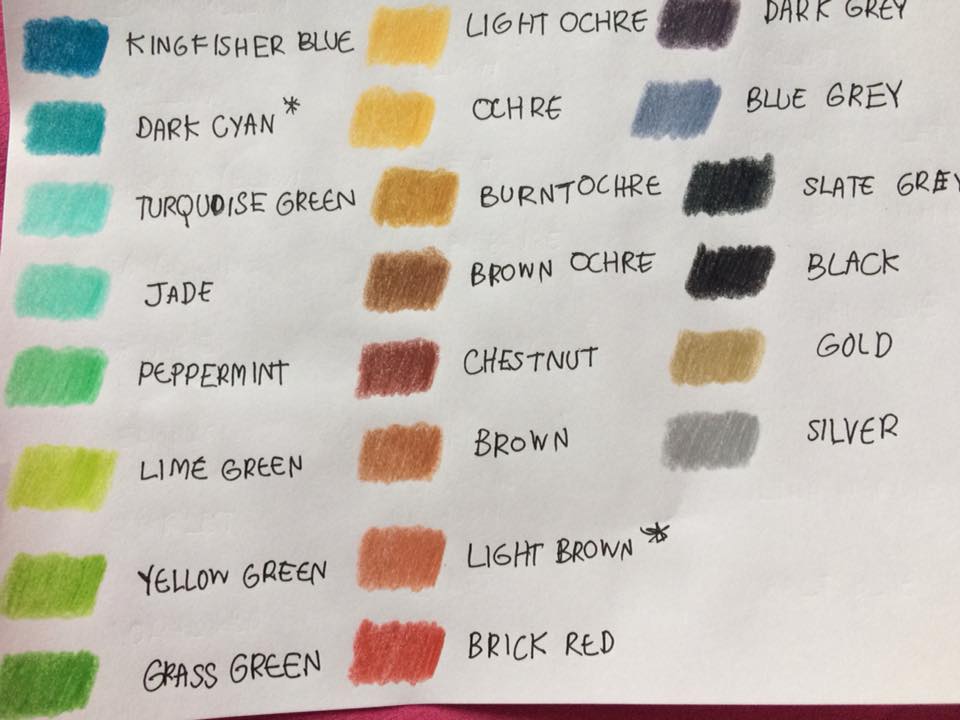 KINGFISHER BLUE
DARK CYAN *
TURQUOISE GREEN
JADE
PEPPERMINT
LIME GREEN
YELLOW GREEN
GRASS GREEN
LIGHT OCHRE
OCHRE
BURNT OCHRE
BROWN OCHRE
CHESTNUT
BROWN
LIGHT BROWN *
BRICK RED
DARK GREY
BLUE GREY
SLATE GREY
BLACK
GOLD
SILVER